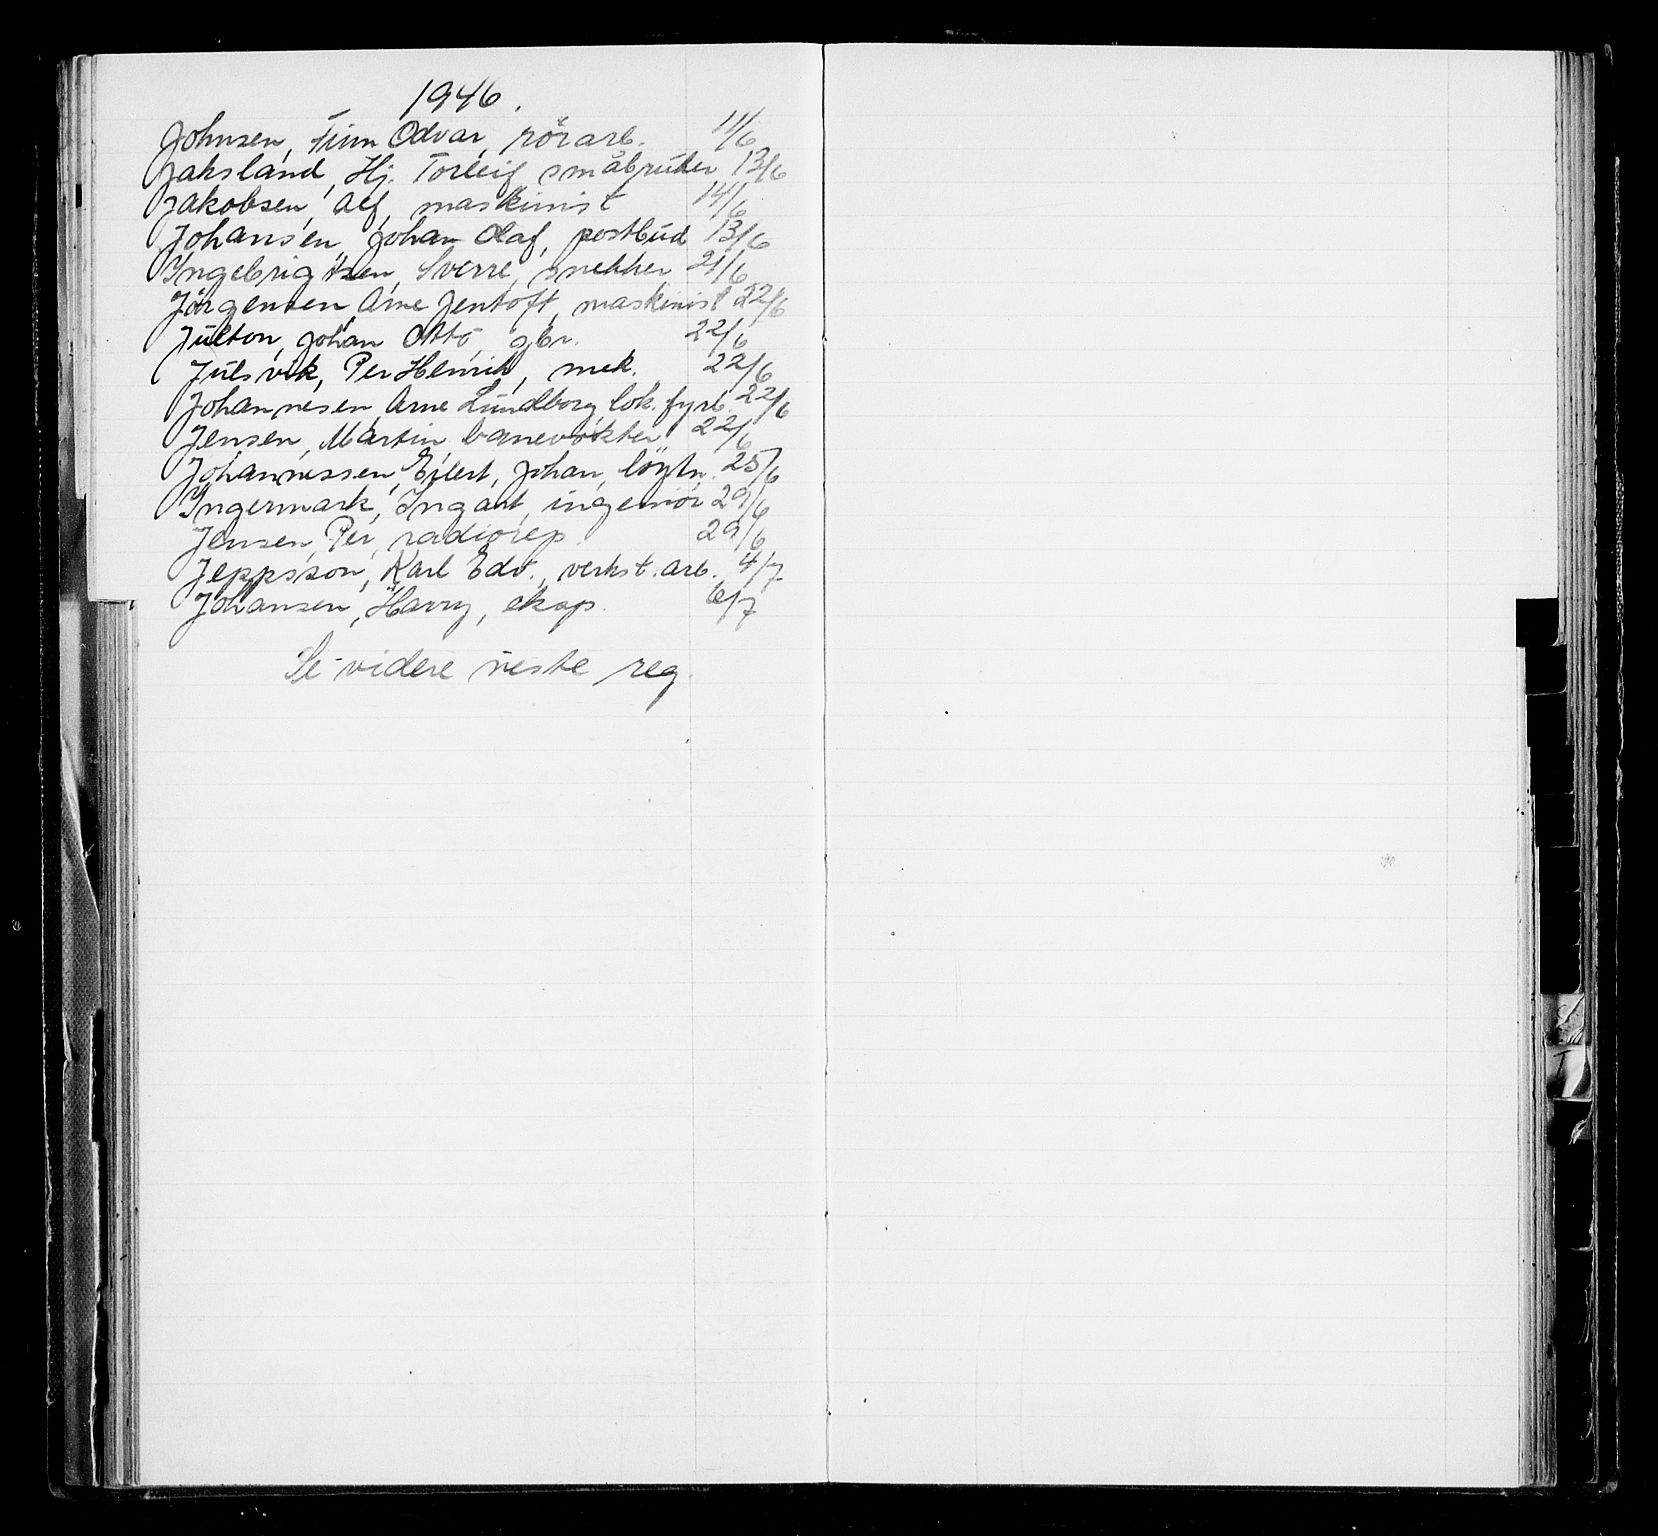 1946.
Johnsen, Finn Odvar, rörarb. 11/6
Jaksland, Hj. Torleif småbruker 13/6
Jakobsen, Alf, maskinist 14/6
Johansen, Johan Olaf, postbud 13/6
Ingebrigtsen, Sverre, snekker 21/6
Jörgensen, Arne Jentoft, maskinist 22/6
Julton, Johan Otto, gbr. 22/6
Julsvik, Per Henrik, mek. 22/6
Johannesen, Arne Lundborg, lok. fyrb. 22/6
Jensen, Martin, banevokter 22/6
Johannessen, Eilert, Johan, löytn. 25/6
Ingermark, Ingart, ingeniör 29/6
Jensen, Per, radiorep. 29/6
Jeppsson, Karl Edv., verkst. arb. 4/7
Johansen, Harry, eksp. 6/7
Se videre neste reg.